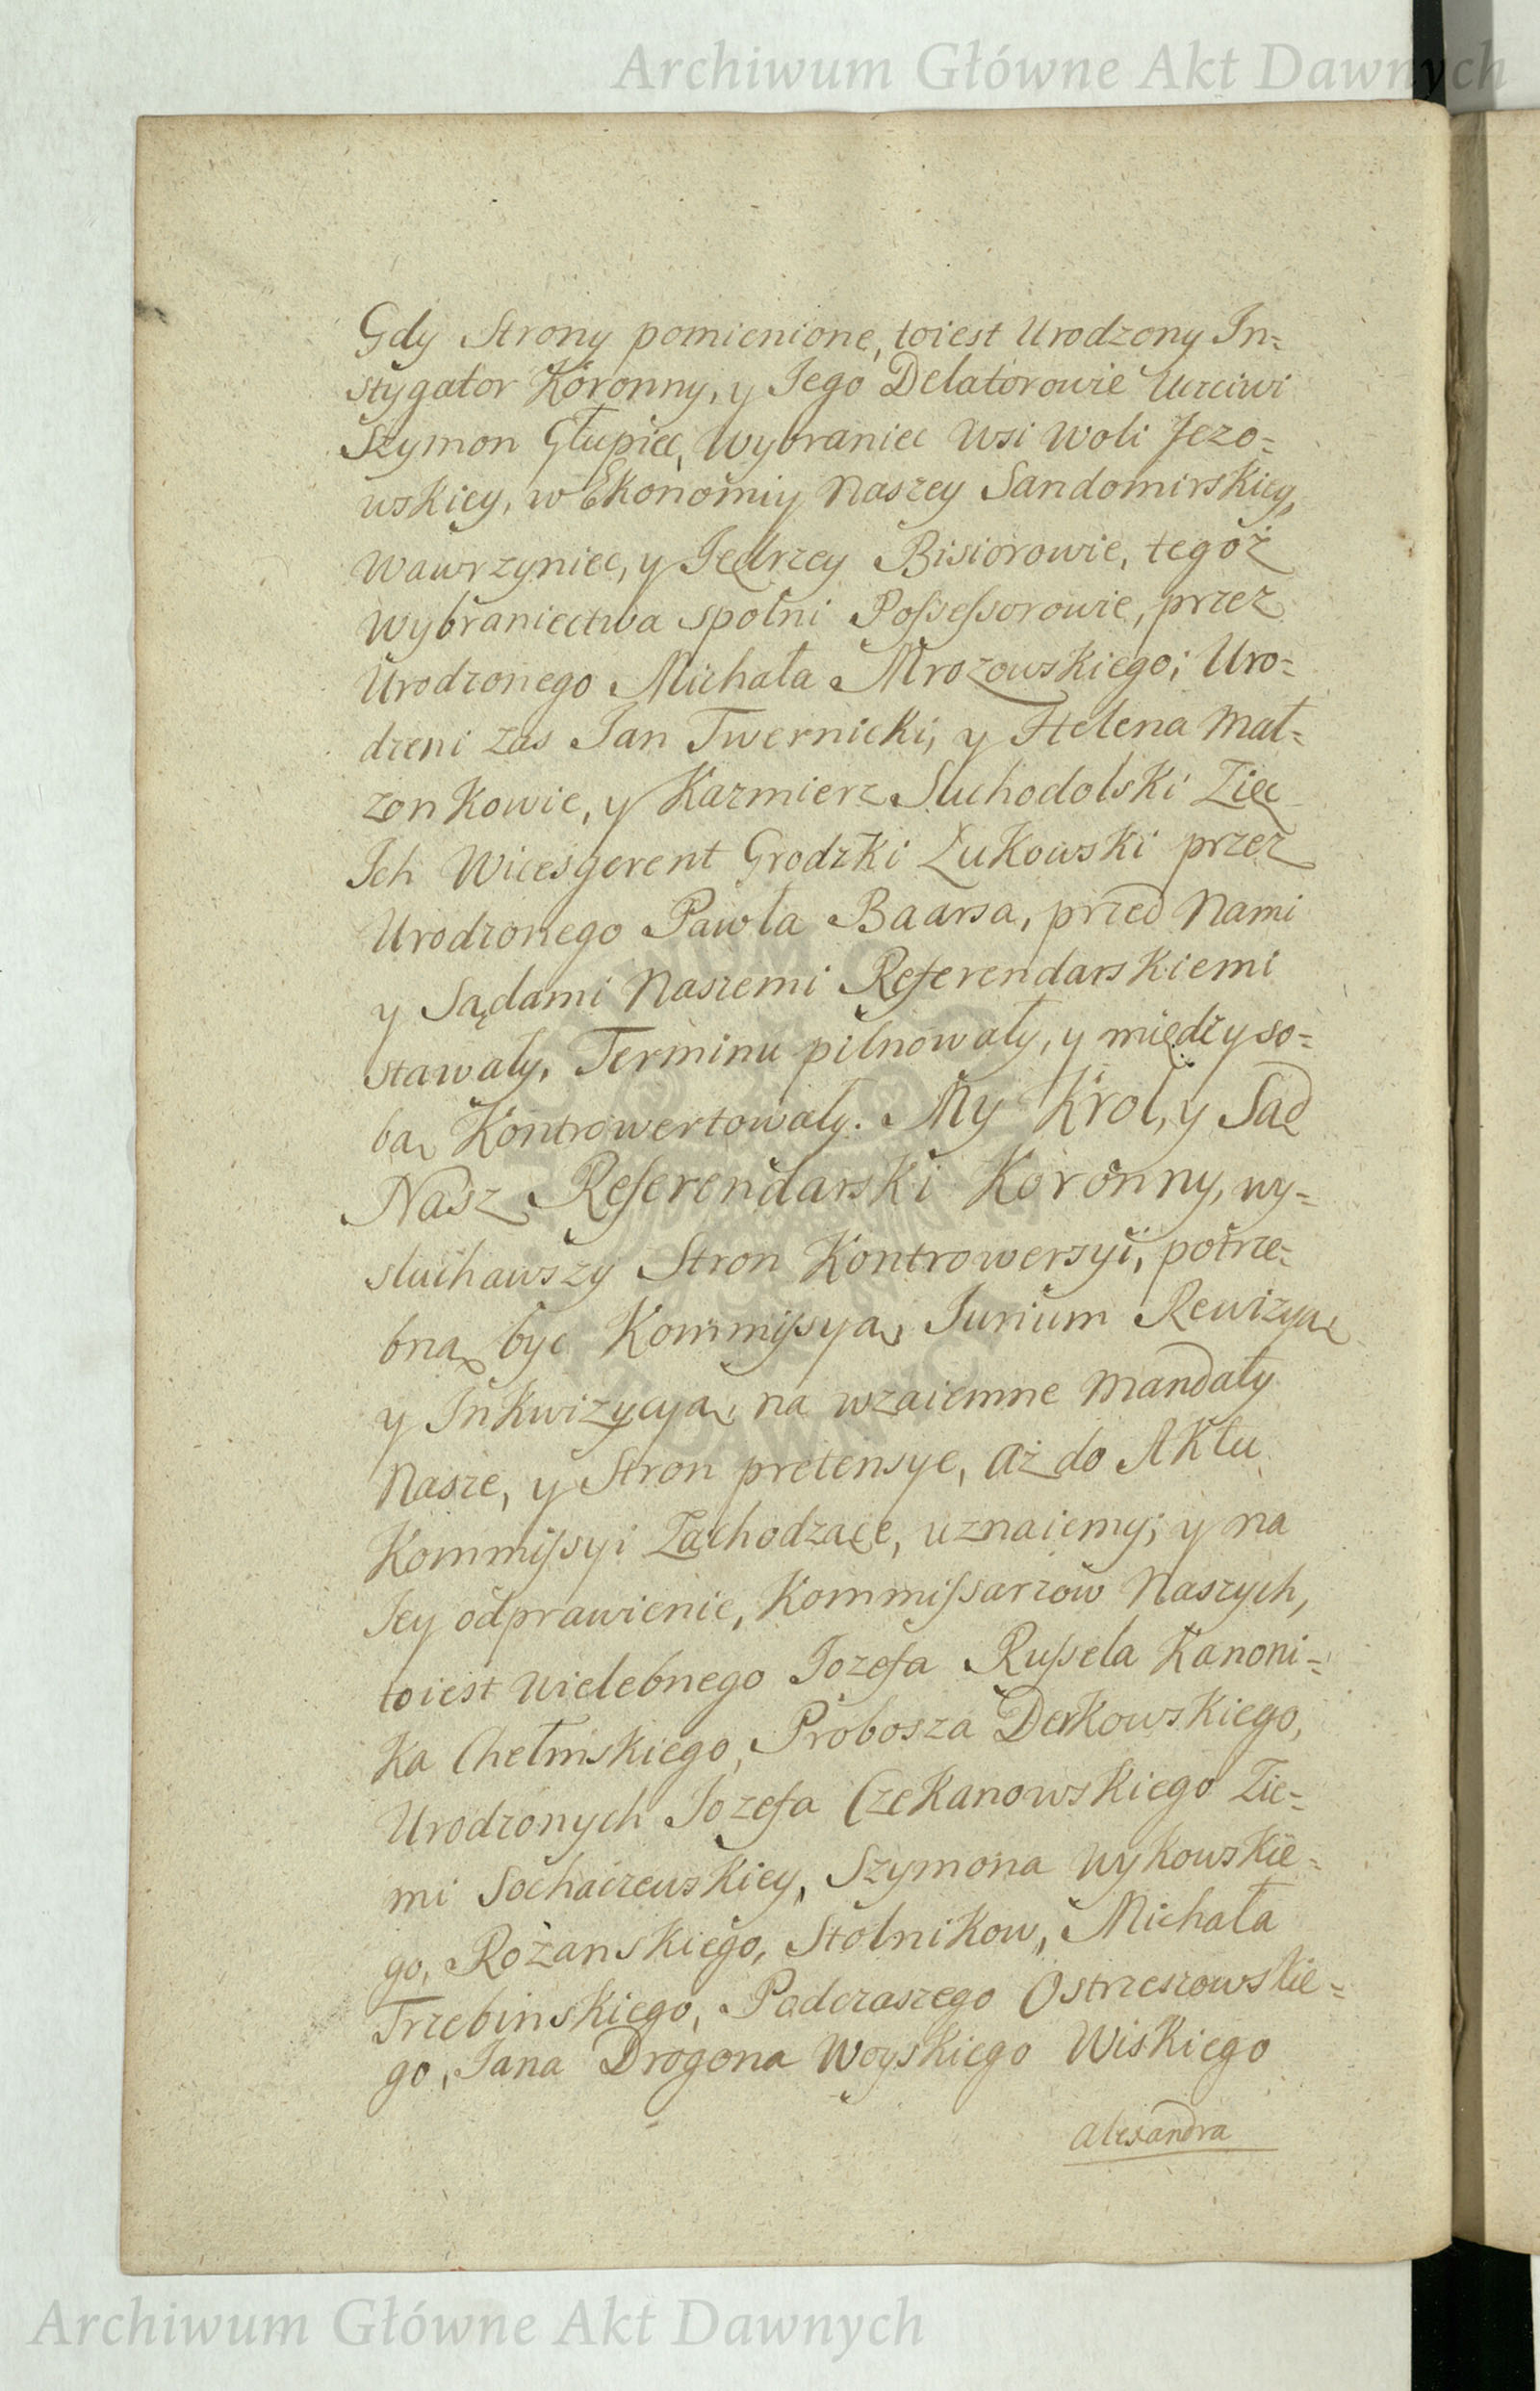 Archiwum Główne Akt Dawnych
Gdy Strony pomienione, toiest Urodzony In=
stygator Koronny, y Jego Delatorowie Uczciwi
Szymon Głupiec, Wybraniec Wsi Woli Jezo=
wskiey, w Ekonomiy Naszey Sandomirskiey,
Wawrzyniec, y Jędrzey Bisiorowie, tegoż
Wybraniectwa spolni Possessorowie, przez
Urodzonego Michała Mrozowskiego; Uro=
dzeni zas Jan Twernicki, y Helena Mał=
zonkowie, y Kazmierz Suchodolski Zięc
Ich Wicesgerent Grodzki Łukowski przez
Urodzonego Pawła Baarsa, przed Nami
y Sądami Naszemi Referendarskiemi
stawały, Terminu pilnowały, y między so=
bą Kontrowertowały. My Krol, y Sąd
Nasz Referendarski Koronny, wy=
słuchawszy Stron Kontrowersyi, potrze=
bną byc Kommissyą, Jurium Rewizyą
y Inkwizycyą, na wzaiemne Mandaty
Nasze, y Stron pretensye, aż do Aktu
Kommissyi Zachodzące, uznaiemy; y na
Jey odprawienie, Kommissarzow Naszych,
toiest Wielebnego Jozefa Russela Kanoni=
ka Chełmskiego, Probosza Derkowskiego,
Urodzonych Jozefa Czekanowskiego Zie=
mi Sochaczewskiey, Szymona Wykowskie=
go, Rożanskiego, Stolnikow, Michała
Trzebinskiego, Podczaszego Ostrzeszowskie=
go, Jana Drogona Woyskiego Wiskiego
Alexandra
Archiwum Główne Akt Dawnych